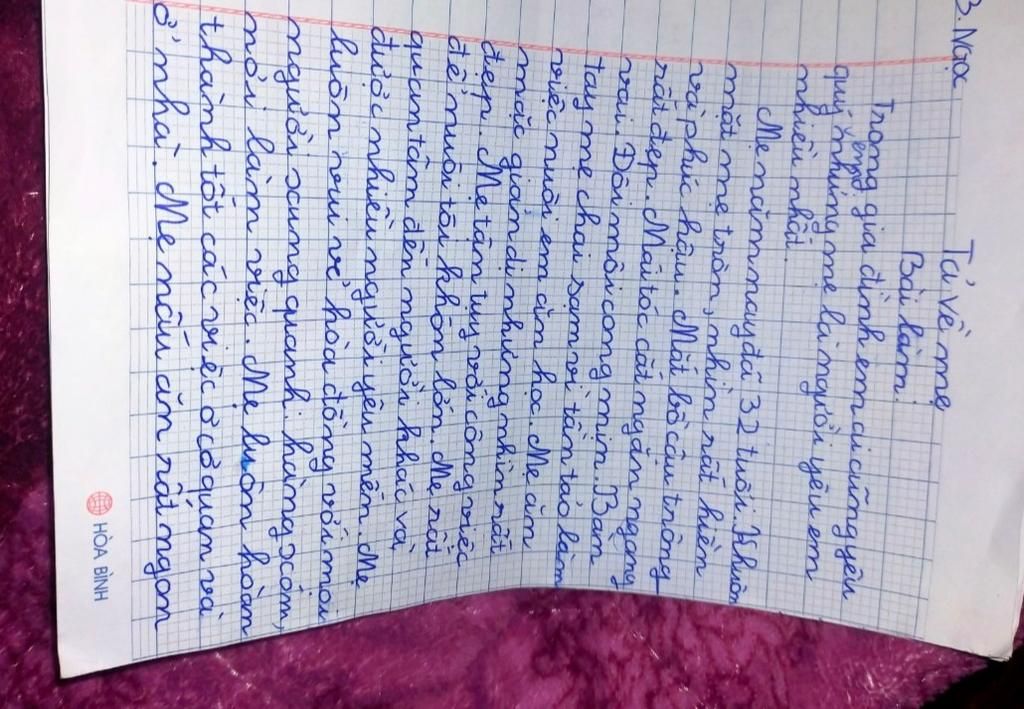 3. Ngọc
Tả về mẹ
Bài làm:
Trong gia đình em ai cũng yêu
quý em, nhưng mẹ là người yêu em
nhiều nhất.
Mẹ năm nay đã 32 tuổi. Khuôn
mặt mẹ tròn, nhìn rất hiền
và phúc hậu. Mắt bồ câu trông
rất đẹp. Mái tóc cắt ngắn ngang
vai. Đôi môi cong mịn. Bàn
tay mẹ chai sạm vì tần tảo làm
việc nuôi em ăn học. Mẹ ăn
mặc giản dị nhưng nhìn rất
đẹp. Mẹ tận tụy với công việc
để nuôi tôi khôn lớn. Mẹ rất
quan tâm đến người khác và
được nhiều người yêu mến. Mẹ
luôn vui vẻ hòa đồng với mọi
người xung quanh: hàng xóm,
nơi làm việc. Mẹ luôn hoàn
thành tốt các việc ở cơ quan và
ở nhà. Mẹ nấu ăn rất ngon
HÒA BÌNH